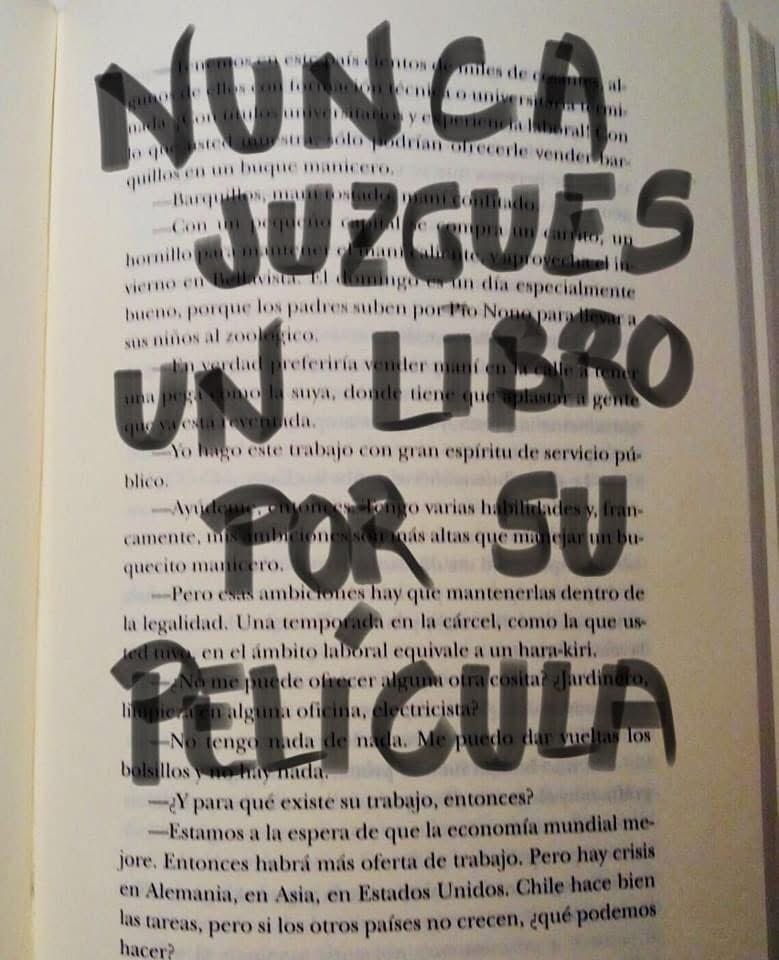 NUNCA
JUZGUES
UN LIBRO
POR SU
PELÍCULA
—Tenemos en este país cientos de miles de cesantes, al-
gunos de ellos con formación técnica o universitaria termi-
nada. ¡Con títulos universitarios y experiencia laboral! Con
lo que usted muestra, sólo podrían ofrecerle vender bar-
quillos en un buque manicero.
—Barquillos, maní tostado, maní confitado.
—Con un pequeño capital se compra un carrito, un
hornillo para mantener el maní caliente, y aprovecha el in-
vierno en Bellavista. El domingo es un día especialmente
bueno, porque los padres suben por Pío Nono para llevar a
sus niños al zoológico.
—En verdad preferiría vender maní en la calle a tener
una pega como la suya, donde tiene que aplastar a gente
que ya está reventada.
—Yo hago este trabajo con gran espíritu de servicio pú-
blico.
—Ayúdeme, entonces. Tengo varias habilidades y, fran-
camente, mis ambiciones son más altas que manejar un bu-
quecito manicero.
—Pero esas ambiciones hay que mantenerlas dentro de
la legalidad. Una temporada en la cárcel, como la que us-
ted tuvo, en el ámbito laboral equivale a un hara-kiri.
—¿No me puede ofrecer alguna otra cosita? ¿Jardinero,
limpieza en alguna oficina, electricista?
—No tengo nada de nada. Me puedo dar vueltas los
bolsillos y no hay nada.
—¿Y para qué existe su trabajo, entonces?
—Estamos a la espera de que la economía mundial me-
jore. Entonces habrá más oferta de trabajo. Pero hay crisis
en Alemania, en Asia, en Estados Unidos. Chile hace bien
las tareas, pero si los otros países no crecen, ¿qué podemos
hacer?